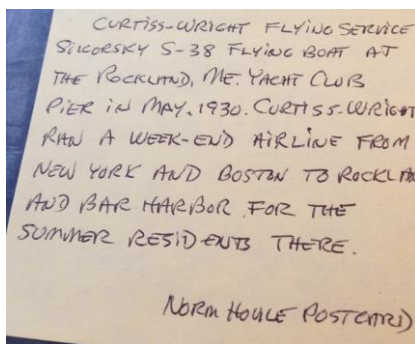 CURTISS-WRIGHT FLYING SERVICE
SIKORSKY S-38 FLYING BOAT AT
THE ROCKLAND, ME. YACHT CLUB
PIER IN MAY, 1930. CURTISS-WRIGHT
RAN A WEEK-END AIRLINE FROM
NEW YORK AND BOSTON TO
AND BAR HARBOR FOR THE
SUMMER RESIDENTS THERE.
NORM HOULE POSTCARD